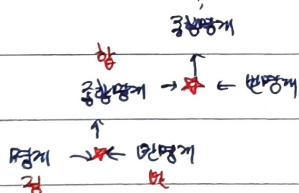 종합명제
합
종합명제 → ☆ ← 반명제
명제 → ☆ ← 반명제
정 반